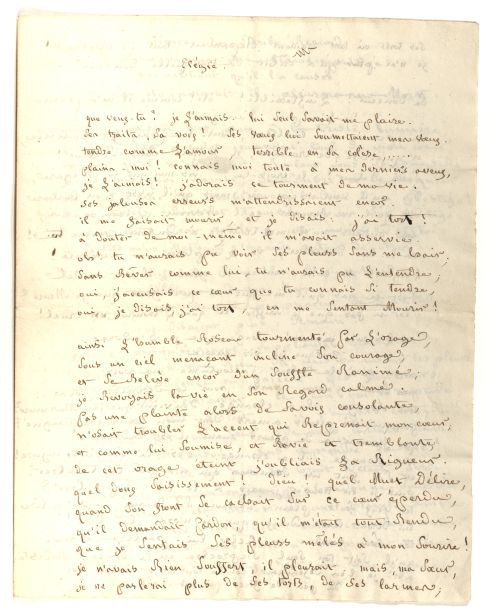 Elégie.
que veux-tu ? je L'aimais. lui seul savait me plaire.
Ses traits, Sa voix ! Ses vœux lui Soumettaient mes vœux.
tendre comme L'amour, terrible en Sa colère,....
plains-moi ! connais moi toute à mes derniers aveux,
je L'aimais ! j'adorais ce tourment de ma vie.
Ses jalouses erreurs m'attendrissaient encor.
il me faisait mourir, et je disais : j'ai tort !
à douter de moi-même il m'avait asservie.
oh ! tu n'aurais pu voir Ses pleurs Sans me haïr ;
Sans Rêver comme lui, tu n'aurais pu L'entendre ;
oui, j'accusais ce cœur que tu connais Si tendre,
oui, je disais, j'ai tort, en me Sentant Mourir !
ainsi L'humble Roseau tourmenté par L'orage,
Sous un ciel menaçant incline Son courage,
et Se Relève encor d'un Souffle Ranimé ;
je Revoyais la vie en Son Regard calmé.
pas une plainte alors de Sa voix consolante,
n'osait troubler L'accent qui Reprenait mon cœur ;
et comme lui Soumise, et Ravie et tremblante
de cet orage éteint j'oubliais La Rigueur.
quel doux Saisissement ! Dieu ! quel Muet Délire,
quand Son front Se cachait Sur ce cœur éperdu,
qu'il demandait Pardon, qu'il m'était tout Rendu,
que je Sentais Ses pleurs mêlés à mon Sourire !
je n'avais Rien Souffert, il pleurait, mais, ma Sœur,
je ne parlerai plus de Ses torts, de Ses larmes ;